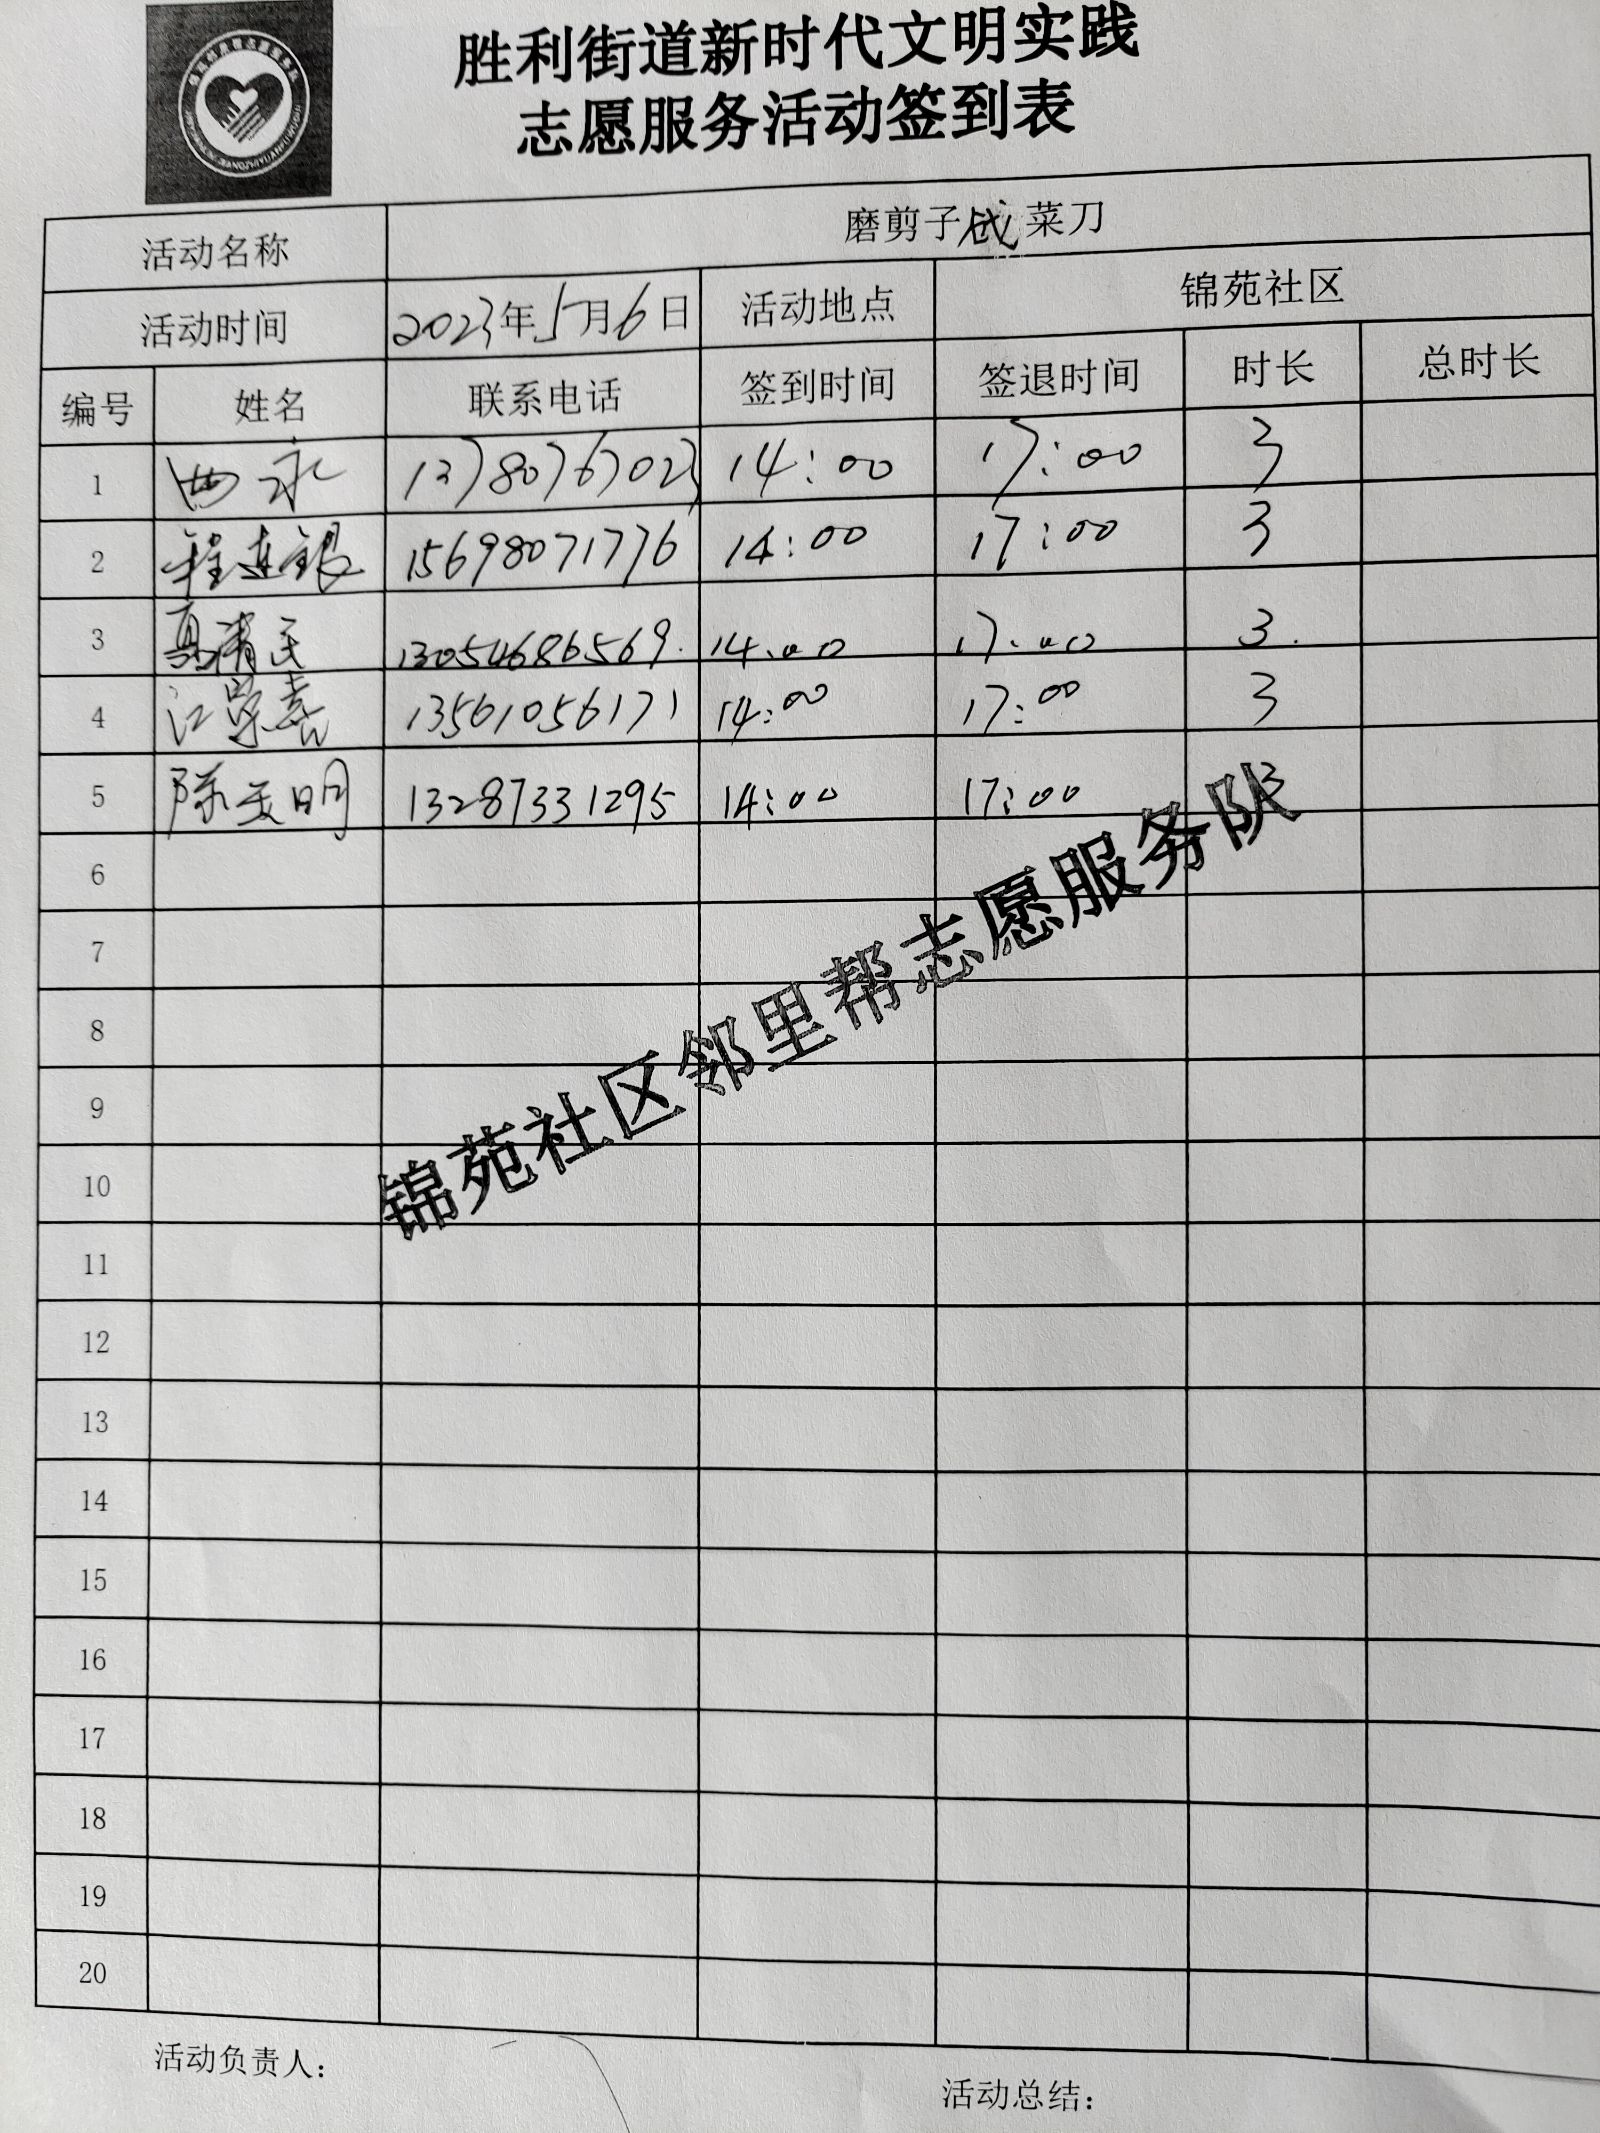 胜利街道新时代文明实践
志愿服务活动签到表
活动名称 磨剪子戗菜刀
活动时间 2023年5月6日 活动地点 锦苑社区
编号 姓名 联系电话 签到时间 签退时间 时长 总时长
1 13780767023 14:00 17:00 3
2 程连银 15698071776 14:00 17:00 3
3 高清民 13054686569. 14:00 17:00 3.
4 江景喜 13561056171 14:00 17:00 3
5 陈天明 13287331295 14:00 17:00 3
6
7
8
9
10
11
12
13
14
15
16
17
18
19
20
锦苑社区邻里帮志愿服务队
活动负责人：
活动总结：